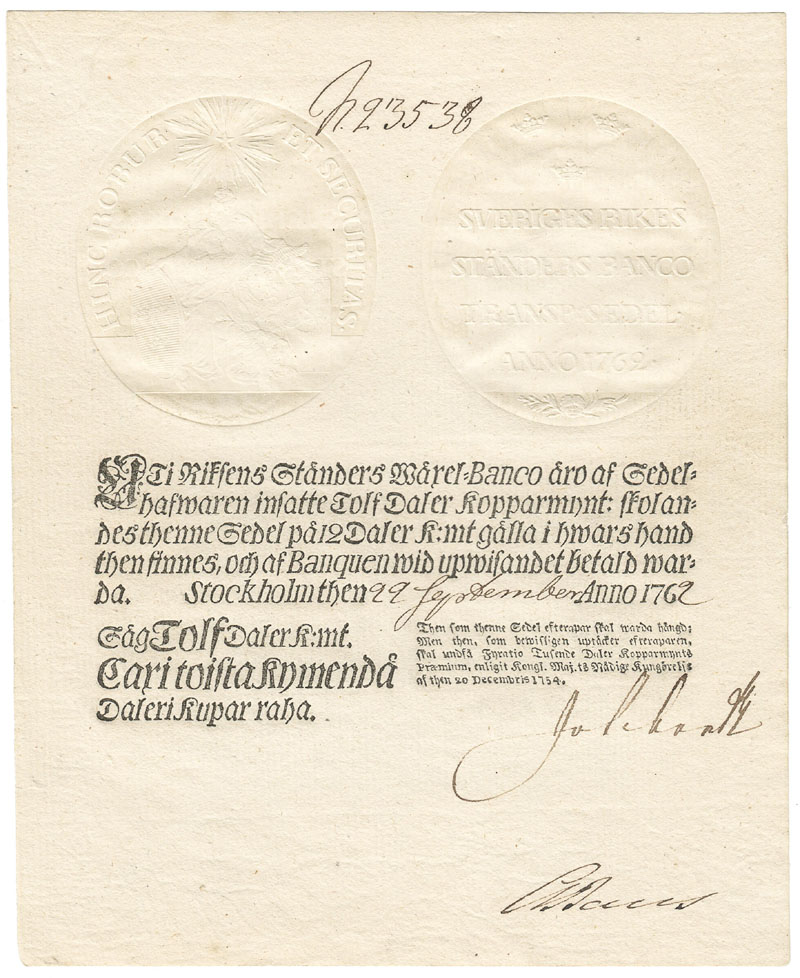 N. 23538
HINC ROBUR ET SECURITAS.
SVERIGES RIKES
STÄNDERS BANCO
TRANSP. SEDEL.
ANNO 1762.
ATi Riksens Ständers Wäxel-Banco äro af Sedel-
hafwaren insatte Tolf Daler Kopparmynt: skolan-
des thenne Sedel på 12 Daler K:mt gälla i hwars hand
then finnes, och af Banquen wid upwisandet betald war-
da. Stockholm then 22 September Anno 1762
Säg Tolf Daler K:mt.
Caxi toista Kymendä
Daleri Kupar raha.
Then som thenne Sedel efterapar skal warda hängd;
Men then, som bewisligen uptäcker efteraparen,
skal undfå Fyratio Tusende Daler Kopparmynts
Præmium, enligit Kongl. Maj.ts Nådige Kungörelse
af then 20 Decembris 1754.